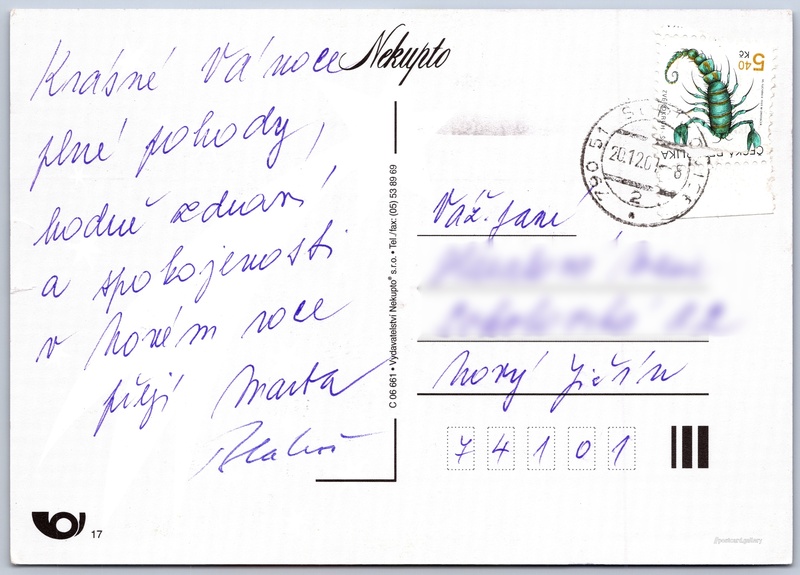 Krásné Vánoce
plné pohody,
hodně zdraví
a spokojenosti
v novém roce
přejí Marta
Nekupto
C 06 661 • Vydavatelství Nekupto® s.r.o. • Tel./fax: (05) 53 89 69
5 40
Kč
ČESKÁ REPUBLIKA
790 51
20.12.01
2
Váž. paní
Nový Jičín
74101
17